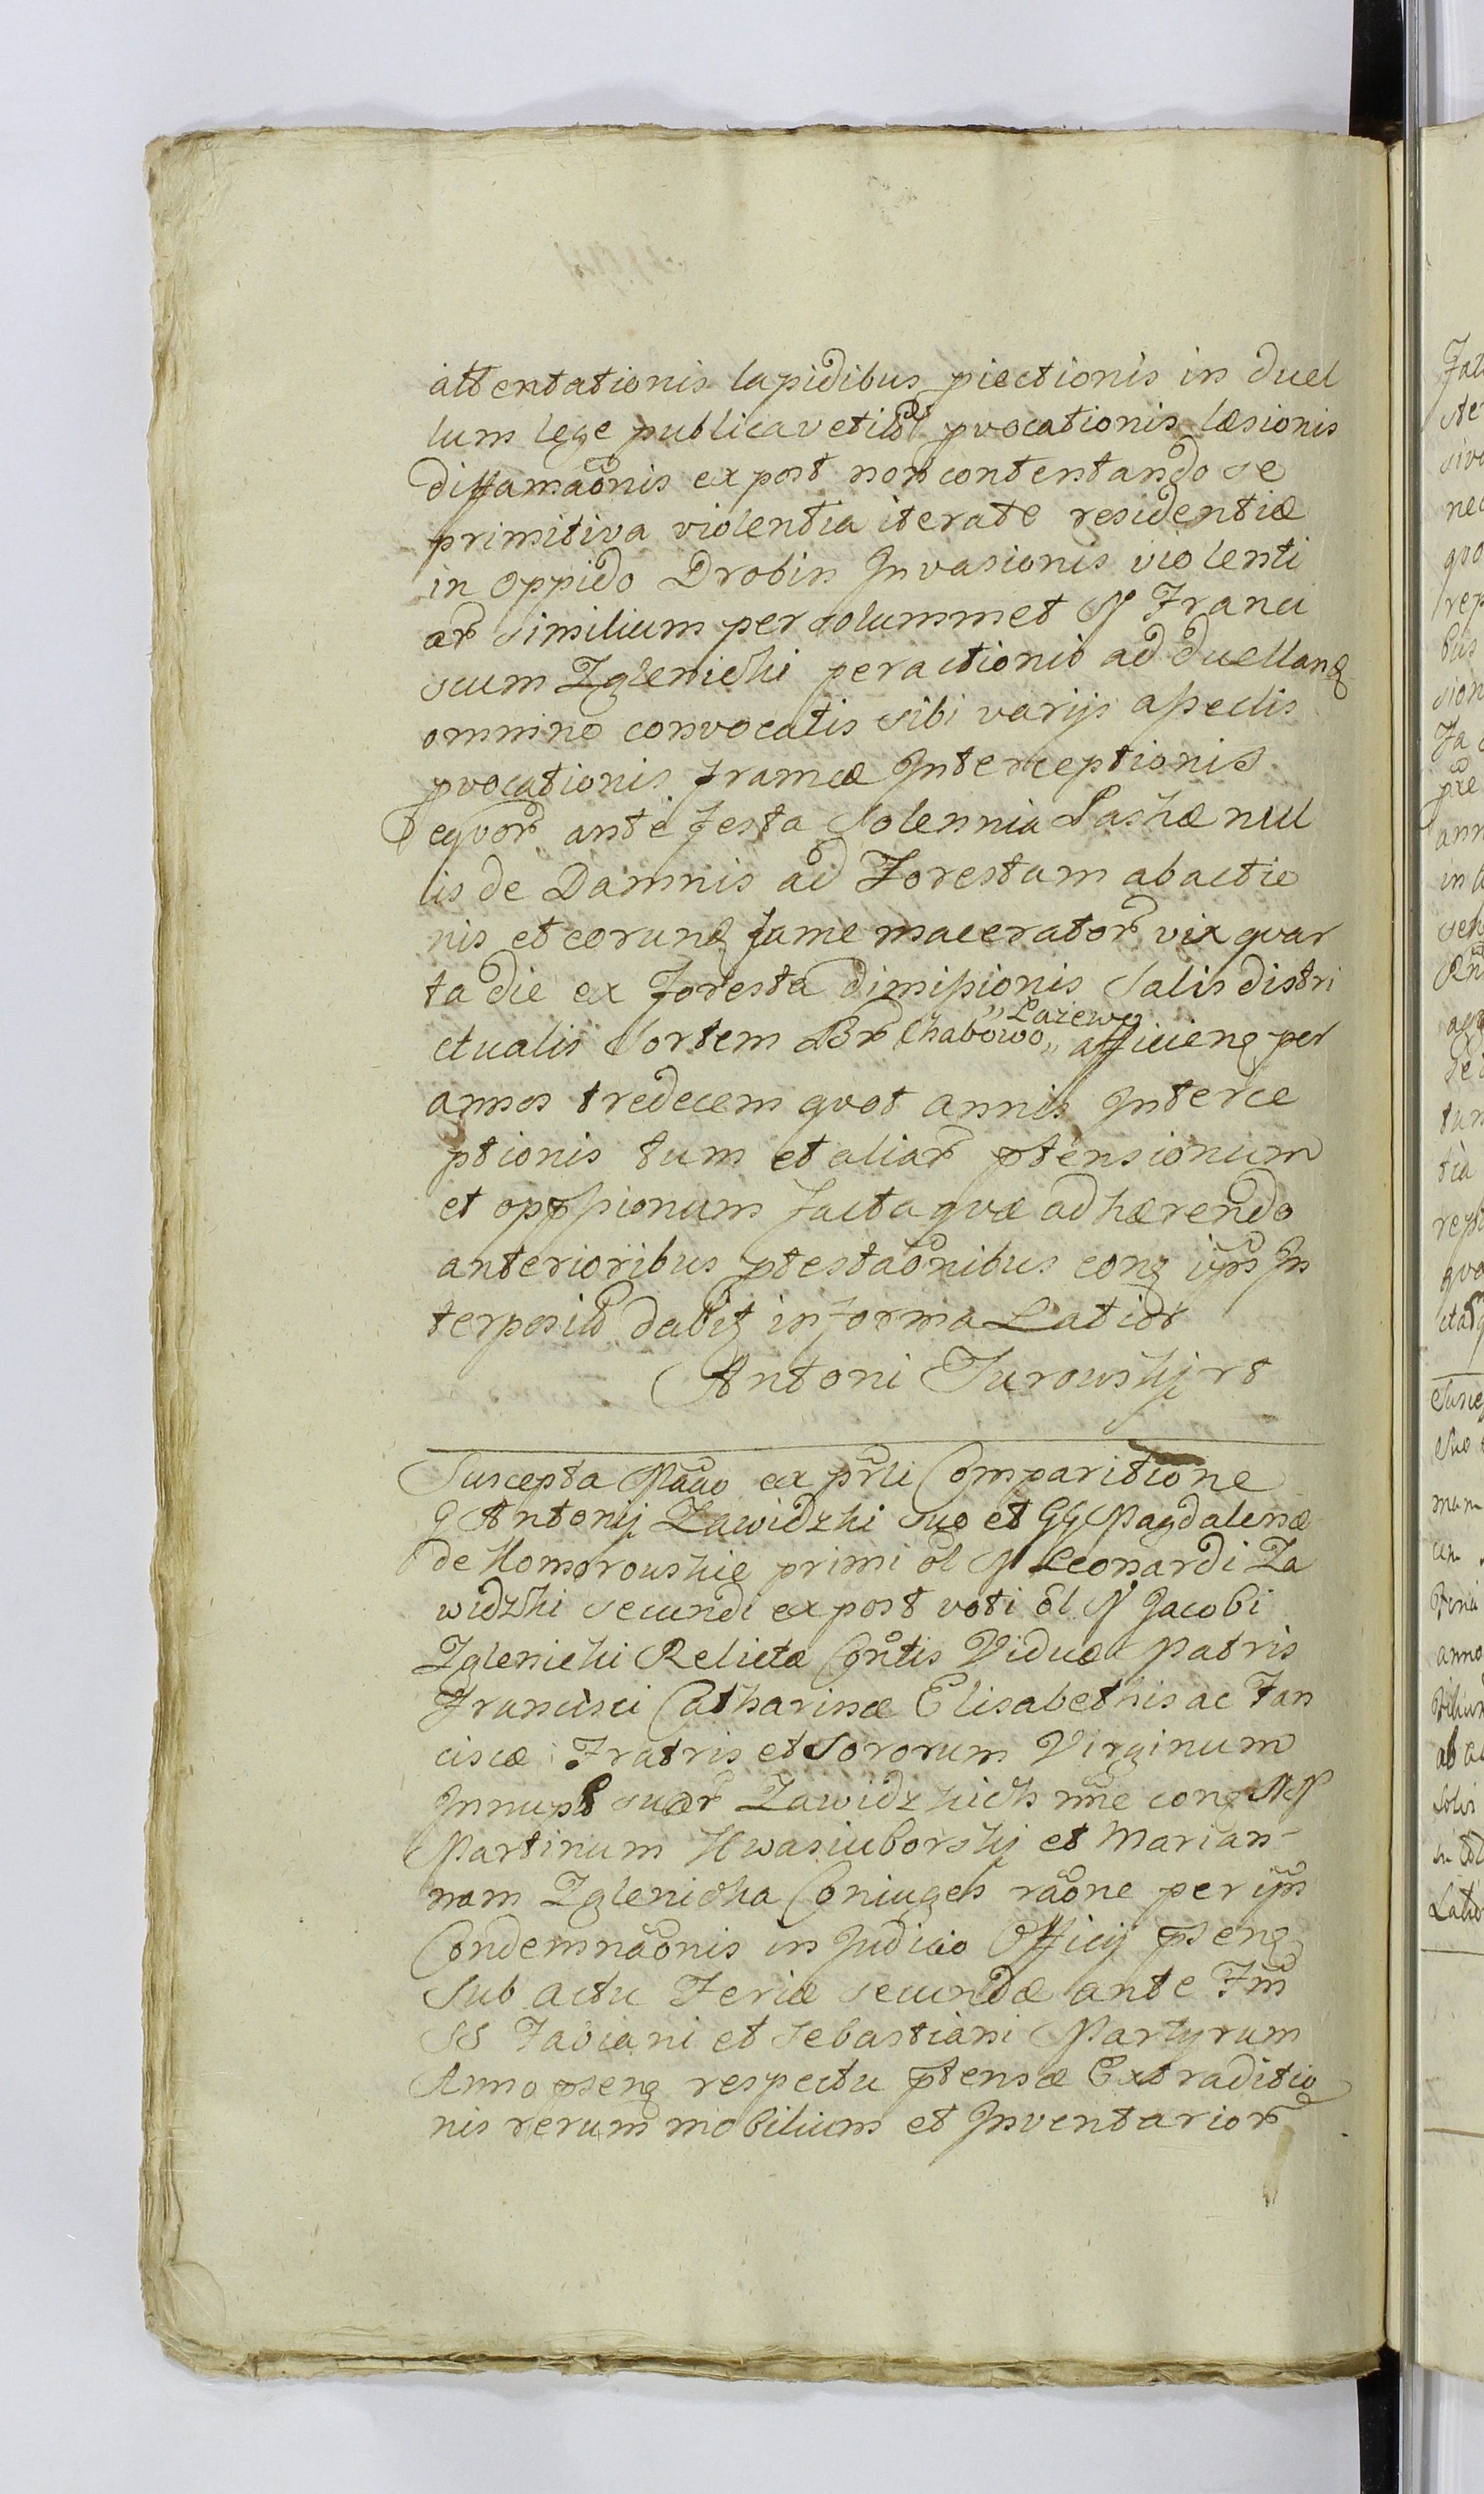 attentationis lapidibus piectionis in duel
lum lege publica vetitu pvocationis læsionis
diffamaonis ex post non contentando se
primitiva violentia iterate residentiæ
in oppido Drobin Invasionis violenti
ar similium per solummet N Franci
scum Zglenicki peractionis ad duellanq
omnino convocatis sibi varijs aspectis
pvocationis frameæ Interceptionis
eqvor ante festa Solennia Paskæ nul
lis de Damnis ad Forestam abactio
nis et eorunq fame macerator vix qvar
ta die ex foresta dimissionis Salis distri
ctualis Sortem Br Chabowo „Łazewo„ afficienq per
annos tredecem qvot annis Interce
ptionis tum et aliar ptensionum
et oppssionum facta qvæ adhærendo
anterioribus ptestaonibus conq ips In
terposit dabit in forma Latior
Antoni Turowskj rt
Suscepta Mao ex prli Comparitione
G Antonij Zawidzki suo et GG Magdalenæ
de Komorowskie primi ol N Leonardi Za
widzki secundi ex post voti ol N Jacobi
Zglenicki Relictæ Contis Viduæ Matris
Francisci Catharinæ Elisabethis ac Fan
ciscæ Fratris et Sororum Virginum
Innupt suar Zawidzkich nne conq NN
Martinum Kwasiuborskj et Marian-
nam Zglenicka Coniuges raone per ips
Condemnaonis in Judicio Officij psenq
Sub actu Feriæ secundæ ante Fm
SS Fabiani et Sebastiani Martyrum
Anno psenq respectu ptensæ Extraditio
nis rerum mobilium et Inventarior